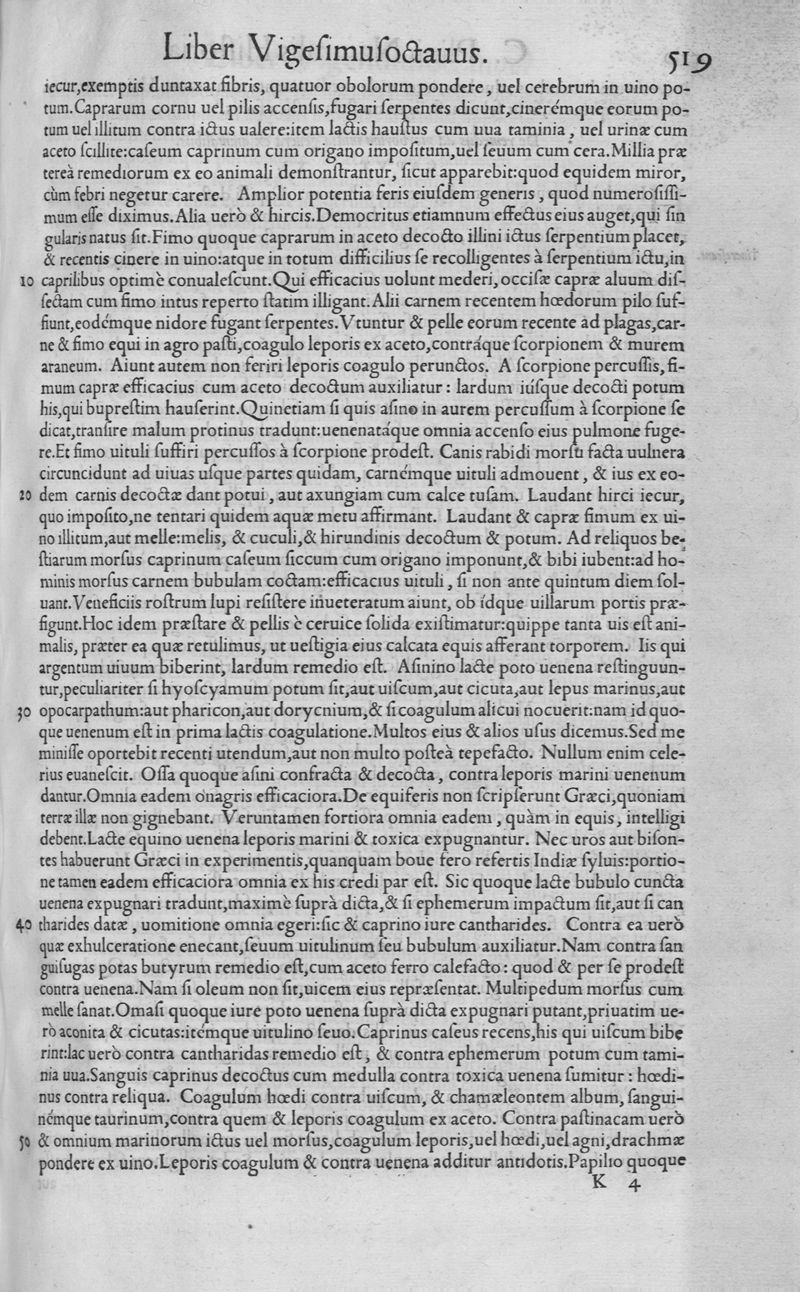 Liber Vigeſimuſoctauus. 519
iecur,exemptis duntaxat fibris, quatuor obolorum pondere, uel cerebrum in uino po-
tum.Caprarum cornu uel pilis accenſis,fugari ſerpentes dicunt,cinerémque eorum po-
tum uel illitum contra ictus ualere:item lactis hauſtus cum uua taminia, uel urinæ cum
aceto ſcillite:caſeum caprinum cum origano impoſitum,uel ſeuum cum cera.Millia præ
tereà remediorum ex eo animali demonſtrantur, ſicut apparebit:quod equidem miror,
cùm febri negetur carere. Amplior potentia feris eiuſdem generis, quod numeroſiſſi-
mum eſſe diximus.Alia uerò & hircis.Democritus etiamnum effectus eius auget,qui ſin
gularis natus ſit.Fimo quoque caprarum in aceto decocto illini ictus ſerpentium placet,
& recentis cinere in uino:atque in totum difficilius ſe recolligentes à ſerpentium ictu,in
10 caprilibus optimè conualeſcunt.Qui efficacius uolunt mederi,occiſæ capræ aluum diſ-
ſectam cum fimo intus reperto ſtatim illigant.Alii carnem recentem hœdorum pilo ſuf-
fiunt,eodémque nidore fugant ſerpentes.Vtuntur & pelle eorum recente ad plagas,car-
ne & fimo equi in agro paſti,coagulo leporis ex aceto,contráque ſcorpionem & murem
araneum. Aiunt autem non feriri leporis coagulo perunctos. A ſcorpione percuſſis, fi-
mum capræ efficacius cum aceto decoctum auxiliatur: lardum iúſque decocti potum
his,qui bupreſtim hauſerint.Quinetiam ſi quis aſino in aurem percuſſum à ſcorpione ſe
dicat,tranſire malum protinus tradunt:uenenatáque omnia accenſo eius pulmone fuge-
re.Et fimo uituli ſuffiri percuſſos à ſcorpione prodeſt. Canis rabidi morſu facta uulnera
circuncidunt ad uiuas uſque partes quidam, carnémque uituli admouent, & ius ex eo-
20 dem carnis decoctæ dant potui, aut axungiam cum calce tuſam. Laudant hirci iecur,
quo impoſito,ne tentari quidem aquæ metu affirmant. Laudant & capræ fimum ex ui-
no illitum,aut melle:melis, & cuculi,& hirundinis decoctum & potum. Ad reliquos be-
ſtiarum morſus caprinum caſeum ſiccum cum origano imponunt,& bibi iubent:ad ho-
minis morſus carnem bubulam coctam:efficacius uituli, ſi non ante quintum diem ſol-
uant.Veneficiis roſtrum lupi reſiſtere inueteratum aiunt, ob ídque uillarum portis præ-
figunt.Hoc idem præſtare & pellis è ceruice ſolida exiſtimatur:quippe tanta uis eſt ani-
malis, præter ea quæ retulimus, ut ueſtigia eius calcata equis afferant torporem. Iis qui
argentum uiuum biberint, lardum remedio eſt. Aſinino lacte poto uenena reſtinguun-
tur,peculiariter ſi hyoſcyamum potum ſit,aut uiſcum,aut cicuta,aut lepus marinus,aut
30 opocarpathum:aut pharicon,aut dorycnium,& ſi coagulum alicui nocuerit:nam id quo-
que uenenum eſt in prima lactis coagulatione.Multos eius & alios uſus dicemus.Sed me
miniſſe oportebit recenti utendum,aut non multo poſteà tepefacto. Nullum enim cele-
rius euaneſcit. Oſſa quoque aſini confracta & decocta, contra leporis marini uenenum
dantur.Omnia eadem onagris efficaciora.De equiferis non ſcripſerunt Græci,quoniam
terræ illæ non gignebant. Veruntamen fortiora omnia eadem, quàm in equis, intelligi
debent.Lacte equino uenena leporis marini & toxica expugnantur. Nec uros aut biſon-
tes habuerunt Græci in experimentis,quanquam boue fero refertis Indiæ ſyluis:portio-
ne tamen eadem efficaciora omnia ex his credi par eſt. Sic quoque lacte bubulo cuncta
uenena expugnari tradunt,maximè ſuprà dicta,& ſi ephemerum impactum ſit,aut ſi can
40 tharides datæ, uomitione omnia egeri:ſic & caprino iure cantharides. Contra ea uerò
quæ exhulceratione enecant,ſeuum uitulinum ſeu bubulum auxiliatur.Nam contra ſan
guiſugas potas butyrum remedio eſt,cum aceto ferro calefacto: quod & per ſe prodeſt
contra uenena.Nam ſi oleum non ſit,uicem eius repræſentat. Multipedum morſus cum
melle ſanat.Omaſi quoque iure poto uenena ſuprà dicta expugnari putant,priuatim ue-
rò aconita & cicutas:itémque uitulino ſeuo.Caprinus caſeus recens,his qui uiſcum bibe
rint:lac uerò contra cantharidas remedio eſt, & contra ephemerum potum cum tami-
nia uua.Sanguis caprinus decoctus cum medulla contra toxica uenena ſumitur: hœdi-
nus contra reliqua. Coagulum hœdi contra uiſcum, & chamæleontem album, ſangui-
némque taurinum,contra quem & leporis coagulum ex aceto. Contra paſtinacam uerò
50 & omnium marinorum ictus uel morſus,coagulum leporis,uel hœdi,uel agni,drachmæ
pondere ex uino.Leporis coagulum & contra uenena additur antidotis.Papilio quoque
K 4